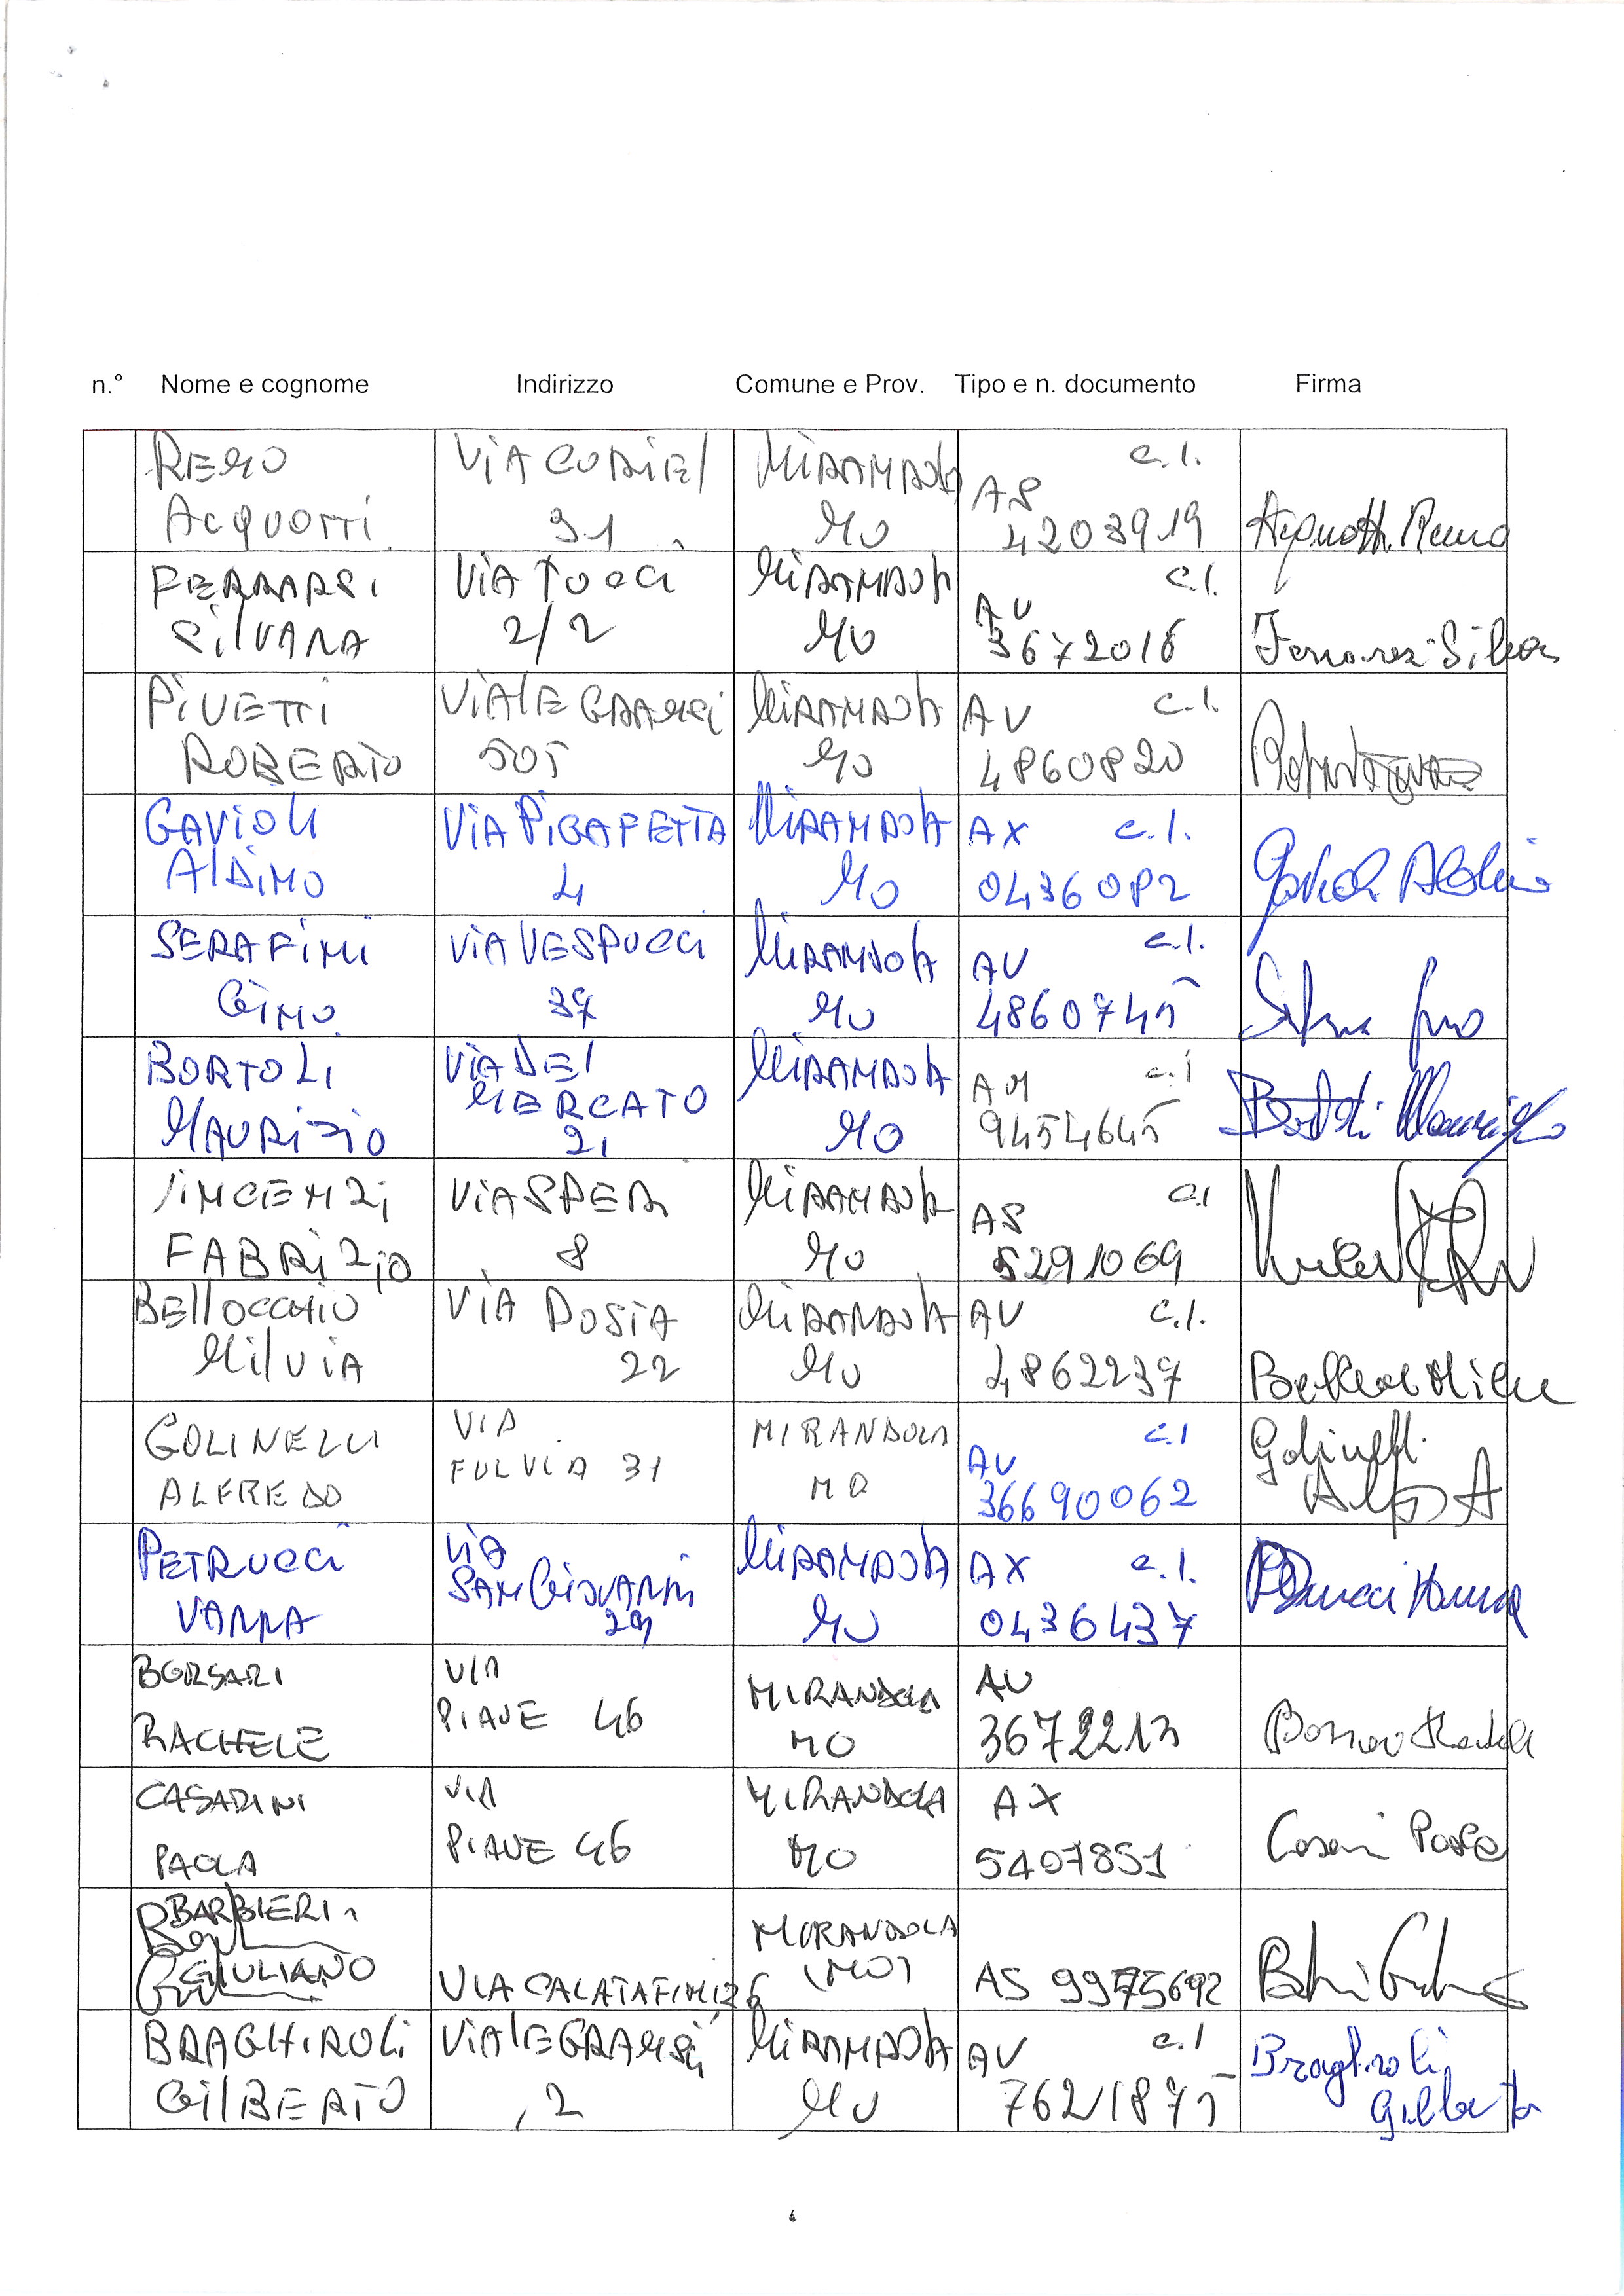 n.° Nome e cognome Indirizzo Comune e Prov. Tipo e n. documento Firma
REMO VIA CURIEL MIRANDOLA C.I.
ACQUOTTI 31 MO AS 4203919
FERRARSI VIA TUCCI MIRANDOLA C.I.
SILVANA 2/2 MO AU 3672016
PIVETTI VIALE GRAMSCI MIRANDOLA AV C.I.
ROBERTO 505 MO 4860820
GAVIOLI VIA PIGAFETTA MIRANDOLA AX C.I.
ALDINO 4 MO 0436082
SERAFINI VIA VESPUCCI MIRANDOLA AV C.I.
GINO 37 MO 4860745
BORTOLI VIA DEL MERCATO MIRANDOLA AM C.I
MAURIZIO 21 MO 9454645 Bortoli Maurizio
VINCENZI VIA SPER MIRANDOLA AS C.I
FABRIZIO 8 MO 5291069
BELLOCCHIO VIA DOSIA MIRANDOLA AV C.I.
MILVIA 22 MO 4862237
GOLINELLI VIA MIRANDOLA AV C.I
ALFREDO FULVIA 31 MO 36690062 Golinelli
PETRUCCI VIA SAN GIOVANNI MIRANDOLA AX C.I.
VANNA 29 MO 0436437
BORSARI VIA MIRANDOLA AU
RACHELE PIAVE 46 MO 3672213
CASARINI VIA MIRANDOLA AX
PAOLA PIAVE 46 MO 5407851 Paola
BARBIERI MIRANDOLA
GIULIANO VIA CALATAFIMI 26 (MO) AS 9975692
BRAGHIROLI VIALE GRAMSCI MIRANDOLA AV C.I Braghiroli
GILBERTO 2 MO 7621875 Gilberto